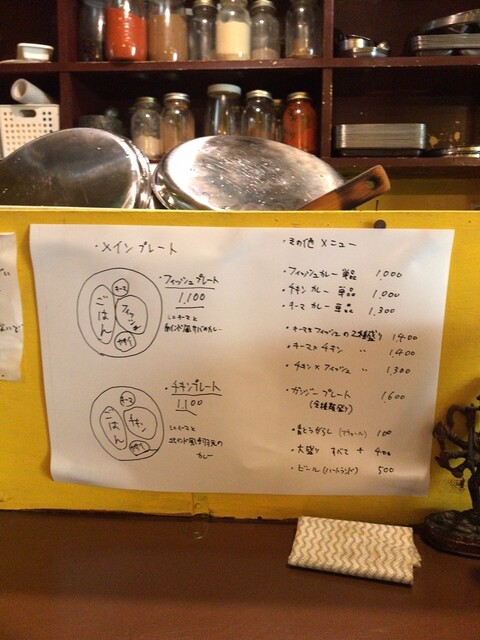 ・メインプレート
キーマ
ごはん
フィッシュ
・フィッシュプレート
1,100
キーマ
ごはん
チキン
・チキンプレート
1,100
カレー
・その他 メニュー
・フィッシュカレー 単品 1,000
・チキン カレー 単品 1,000
・キーマ カレー 単品 1,300
・キーマ×フィッシュの2種盛り 1,400
・キーマ×チキン 〃 1,400
・チキン×フィッシュ 〃 1,300
・ガンジー プレート 1,600
(全種類盛り)
・青とうがらし 100
・大盛り すべて + 400
・ビール (ハートランド) 500